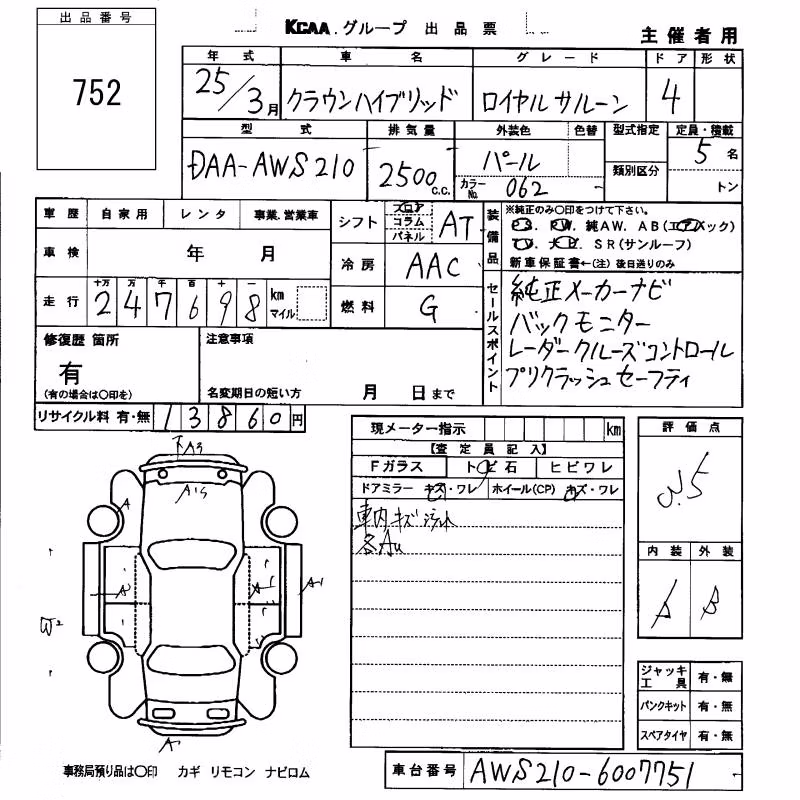 出品番号
752
KCAA.グループ 出品票
主催者用
年式 車名 グレード ドア 形状
25/3月 クラウンハイブリッド ロイヤルサルーン 4
型式 排気量 外装色 色替 型式指定 定員・積載
DAA-AWS210 2500c.c. パール 5名
カラーNo. 062 類別区分 トン
車歴 自家用 レンタ 事業.営業車
シフト フロア コラム パネル AT
装備品
※純正のみ〇印をつけて下さい。
P.S. P.W. 純AW. AB(エアバック)
T.V. ナビ. SR(サンルーフ)
新車保証書←(注)後日送りのみ
車検 年 月
冷房 AAC
走行 十万 万 千 百 十 一
247698 km マイル
燃料 G
セールスポイント
純正メーカーナビ
バックモニター
レーダークルーズコントロール
プリクラッシュセーフティ
修復歴 箇所
有
(有の場合は〇印を)
注意事項
名変期日の短い方 月 日まで
リサイクル料 有・無 13860円
現メーター指示 km
【査定員記入】
Fガラス トビ石 ヒビワレ
ドアミラー キズ・ワレ ホイール(CP) キズ・ワレ
車内キズ
各AU
評価点
3.5
内装 外装
A B
A3
A
A
A1
W2
A
ジャッキ工具 有・無
パンクキット 有・無
スペアタイヤ 有・無
事務局預り品は〇印 カギ リモコン ナビロム
車台番号 AWS210-6007751